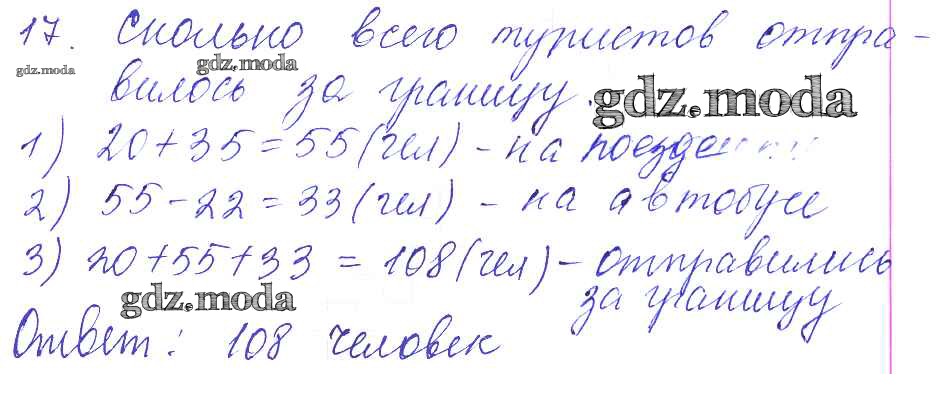 17. Сколько всего туристов отпра-
gdz.moda
gdz.moda
вилось за границу.
gdz.moda
1) 20+35=55(чел) - на поезде
2) 55-22=33(чел) - на автобусе
3) 20+55+33 = 108(чел) - отправились
за границу
gdz.moda
Ответ: 108 человек